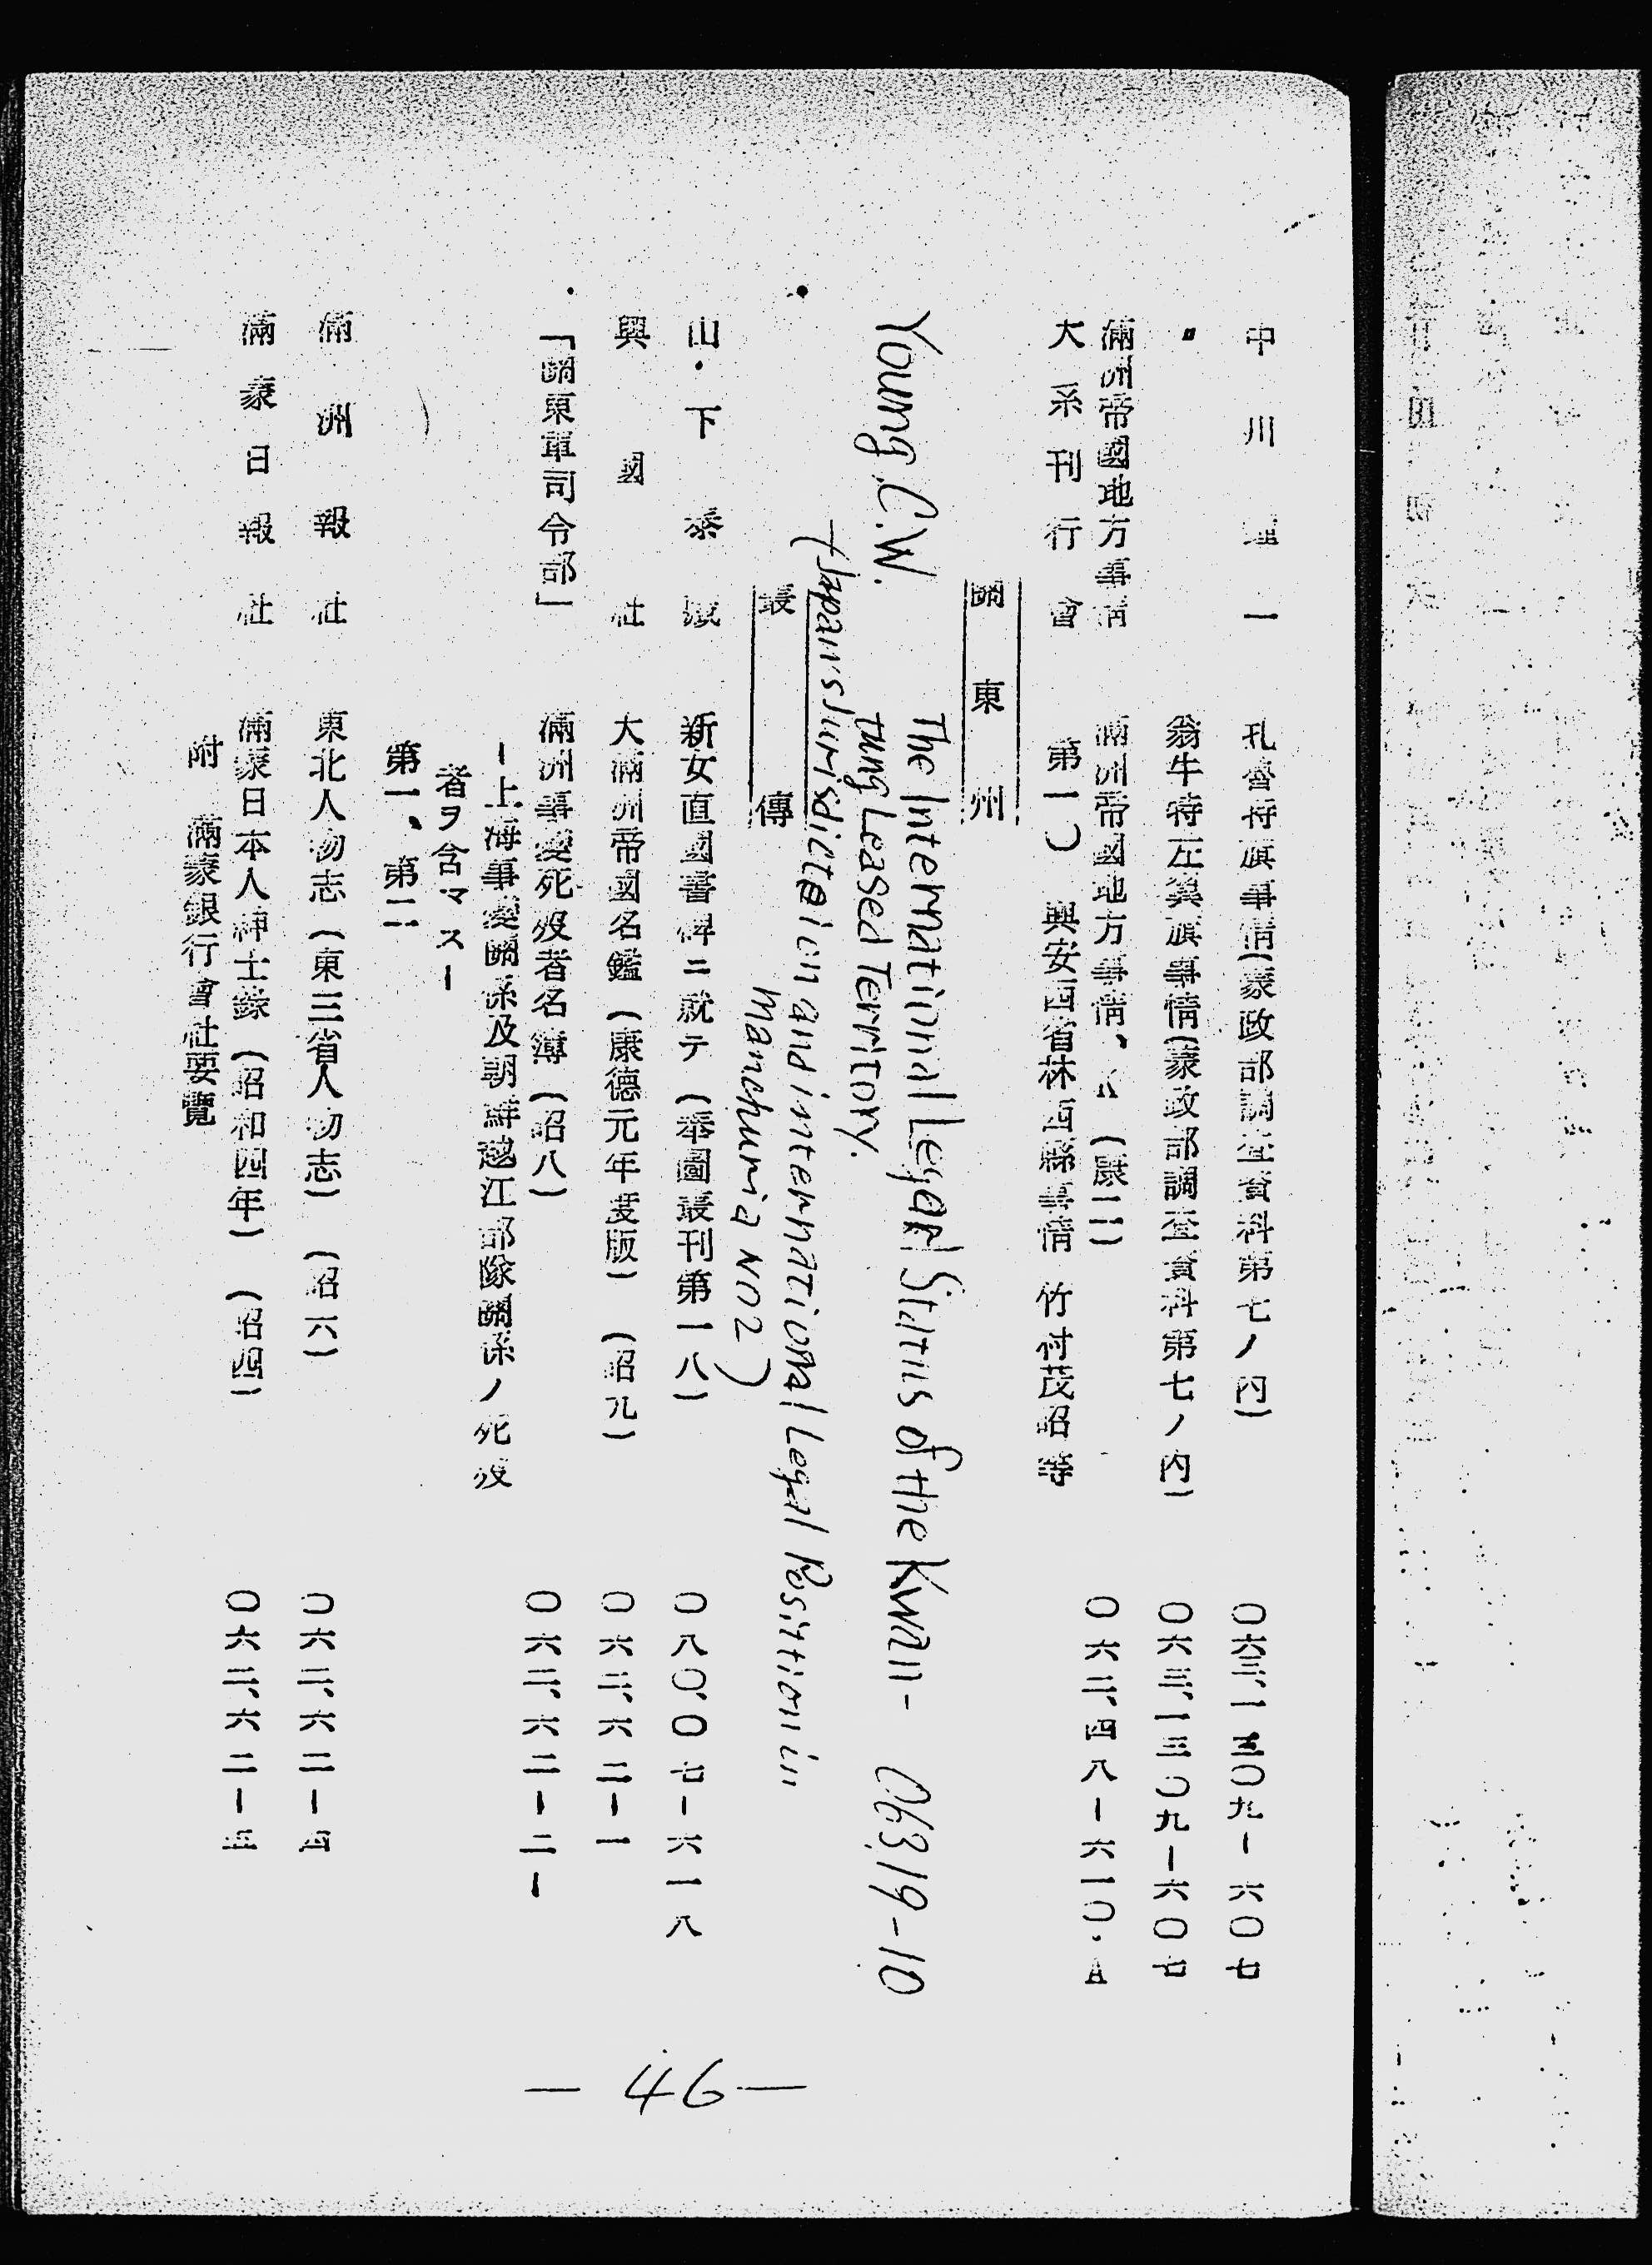 中川
孔魯特旗事情(蒙政部調査資料第七ノ內)
〇六三、一三〇九ー六〇七
〃
翁牛特左翼旗事情(蒙政部調査資料第七ノ內)
〇六三、一三〇九ー六〇七
滿洲帝國地方事情
大系刊行會
滿洲帝國地方事情、(康二)
〇六二、四八ー六一〇・A
第一〕 興安西省林西縣事情 竹村茂昭等
關東州
Young C.W.
The International Legal Status of the Kwan-
tung Leased Territory.
06319-10
(Japan's Jurisdiction and international Legal Position in
manchuria NO2)
叢傳
山下泰藏
新女直國書碑ニ就テ(奉圖叢刊第一八)
〇八〇、〇七ー六一八
興國社
大滿洲帝國名鑑(康德元年度版)(昭九)
〇六二、六二ー一
「關東軍司令部」
滿洲事變死歿者名簿(昭八)
〇六二、六二ー二ー
ー上海事變關係及朝鮮越江部隊關係ノ死歿
者ヲ含マスー
第一、第二
滿洲報社
東北人物志(東三省人物志)(昭六)
〇六二、六二ー四
滿蒙日報社
滿蒙日本人紳士錄(昭和四年)(昭四)
〇六二、六二ー五
附 滿蒙銀行會社要覽
— 46 —